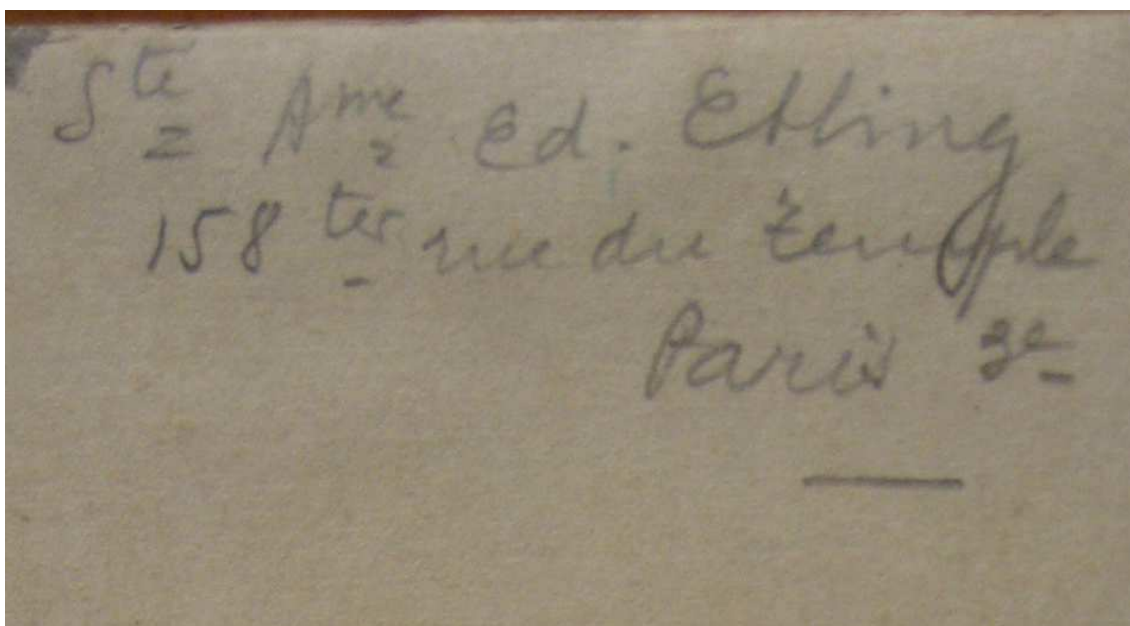 Ste Ame Ed. Etling
158 ter rue du Temple
Paris 3e